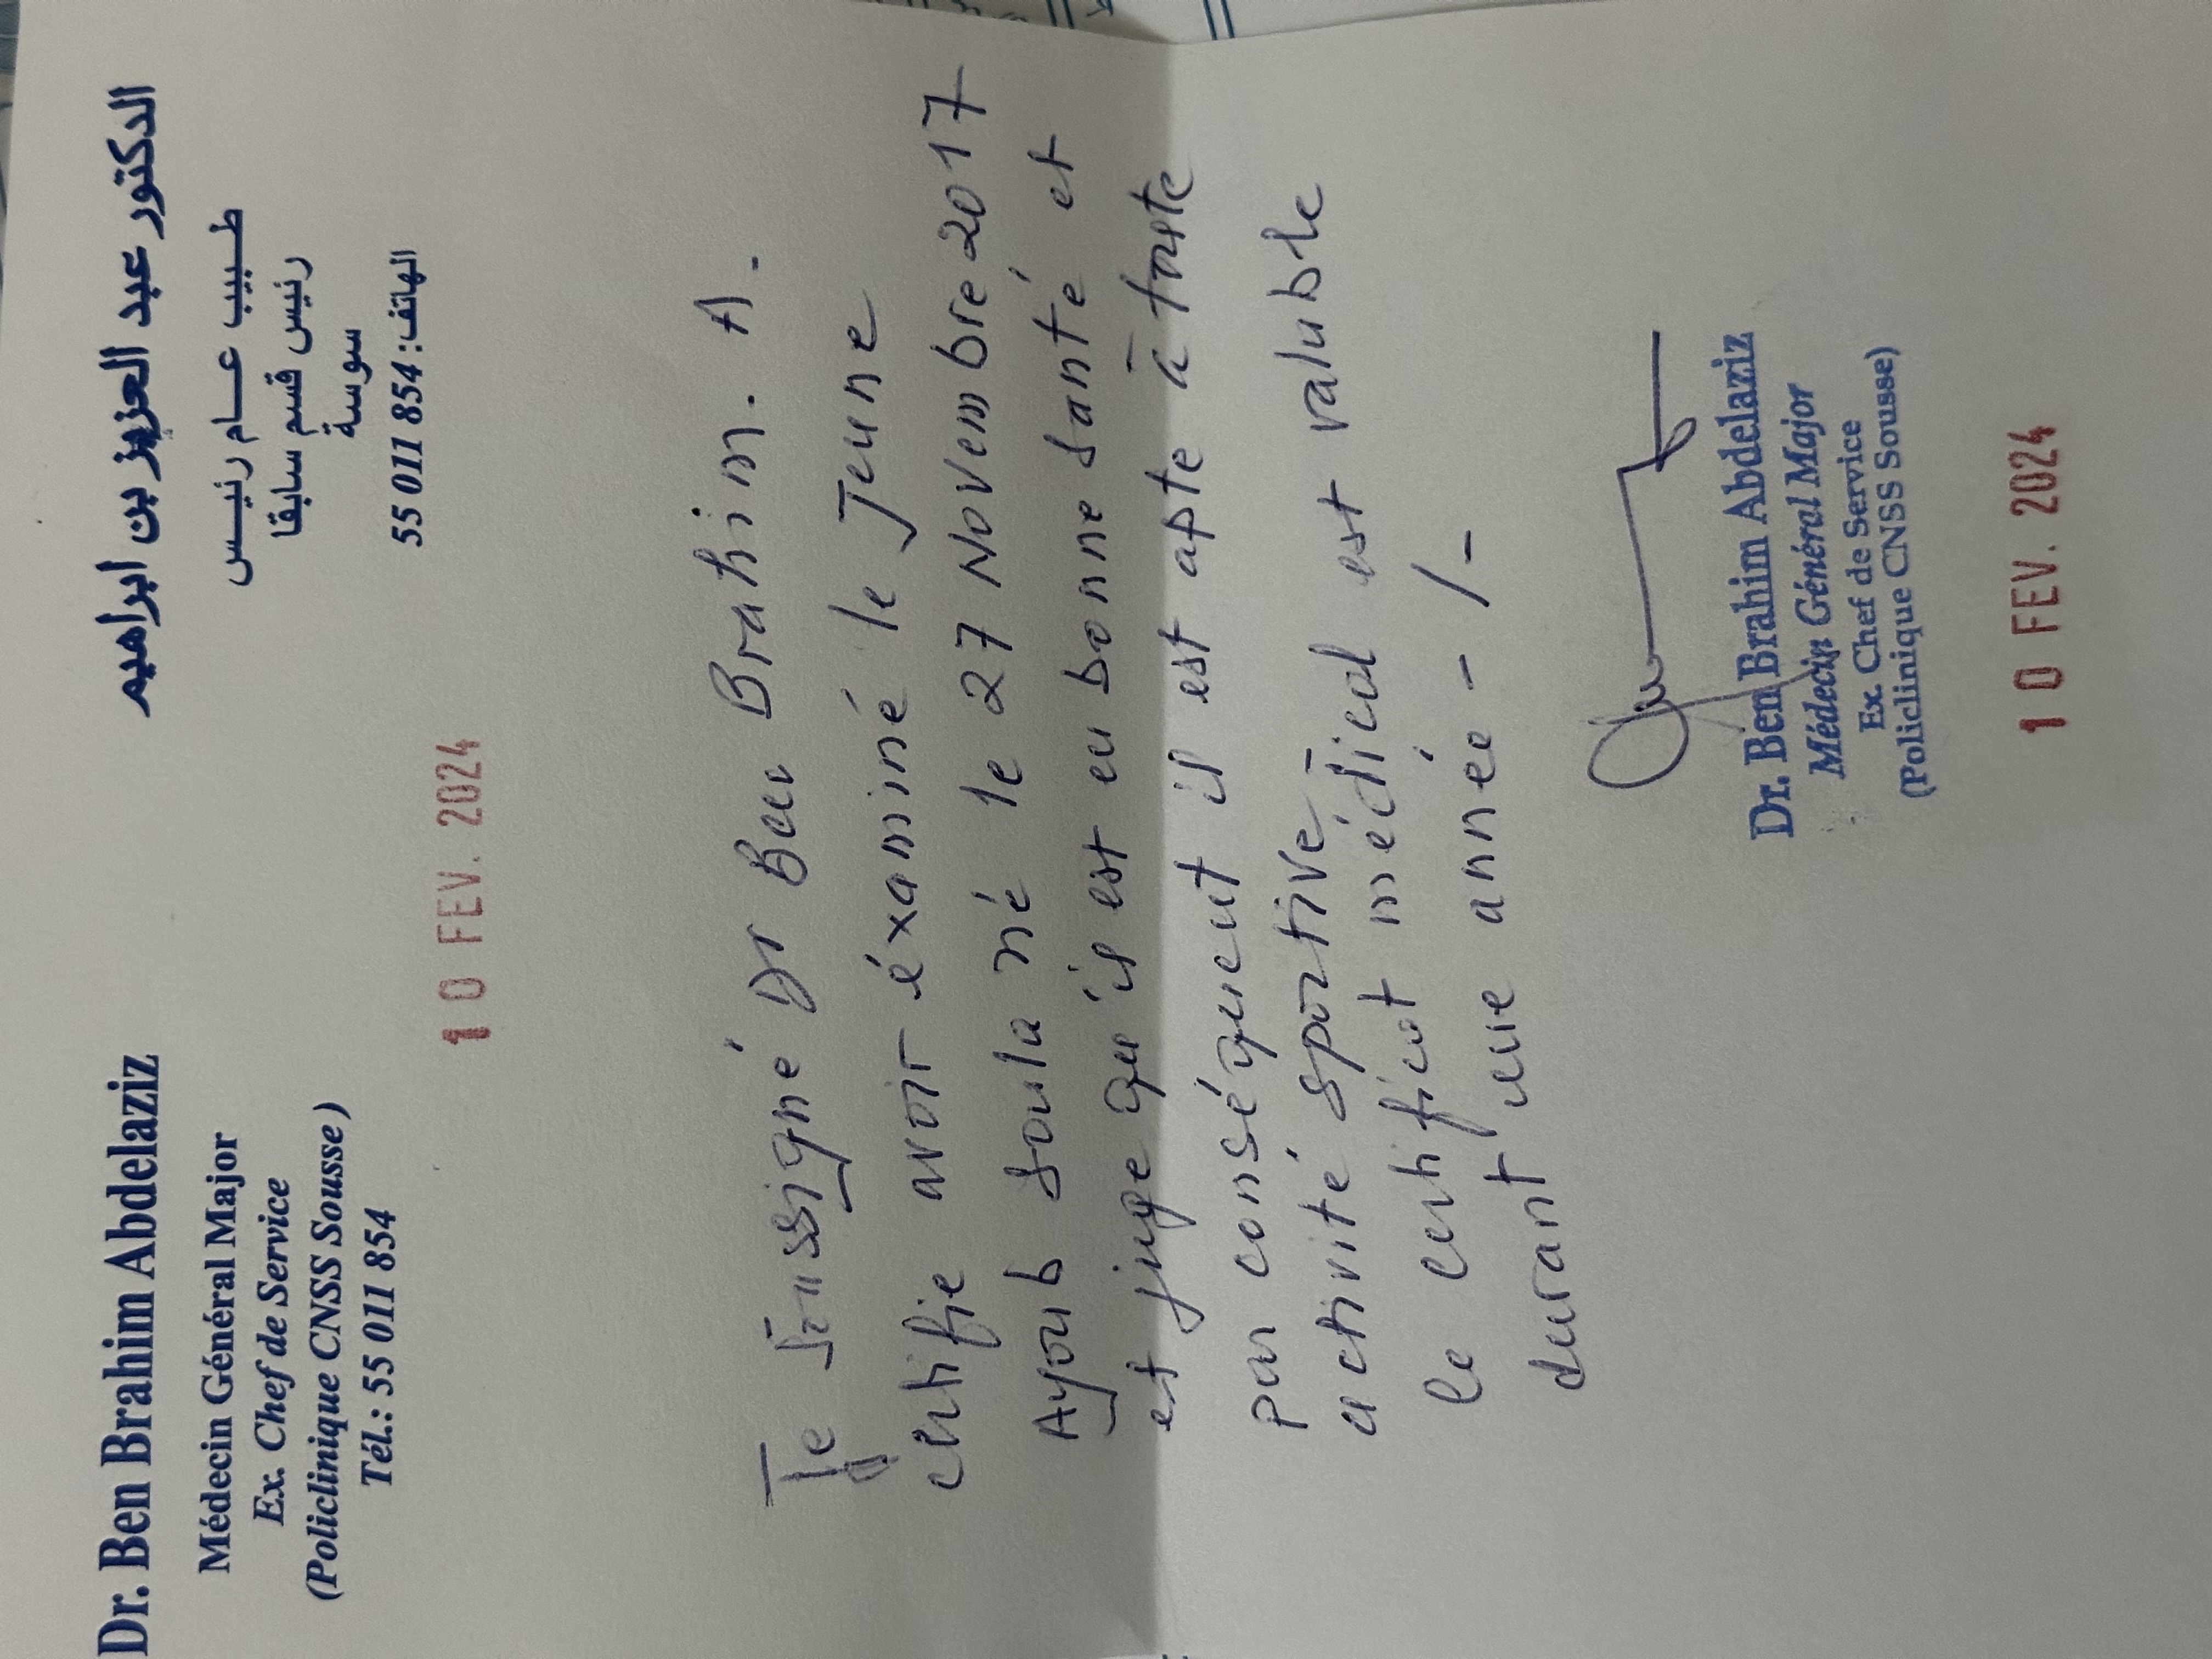 Dr. Ben Brahim Abdelaziz
Médecin Général Major
Ex. Chef de Service
(Policlinique CNSS Sousse)
Tél.: 55 011 854
الدكتور عبد العزيز بن ابراهيم
طبيب عام رئيس
رئيس قسم سابقا
سوسة
الهاتف: 55 011 854
10 FEV. 2024
Je soussigné Dr Ben Brahim. A.
certifie avoir éxaminé le Jeune
Ayoub Soula né le 27 Novembre 2017
et juge qu'il est en bonne santé et
par conséquent il est apte à toute
activité sportive
le certificat médical est valable
durant une année - / -
Dr. Ben Brahim Abdelaziz
Médecin Général Major
Ex. Chef de Service
(Policlinique CNSS Sousse)
10 FEV. 2024